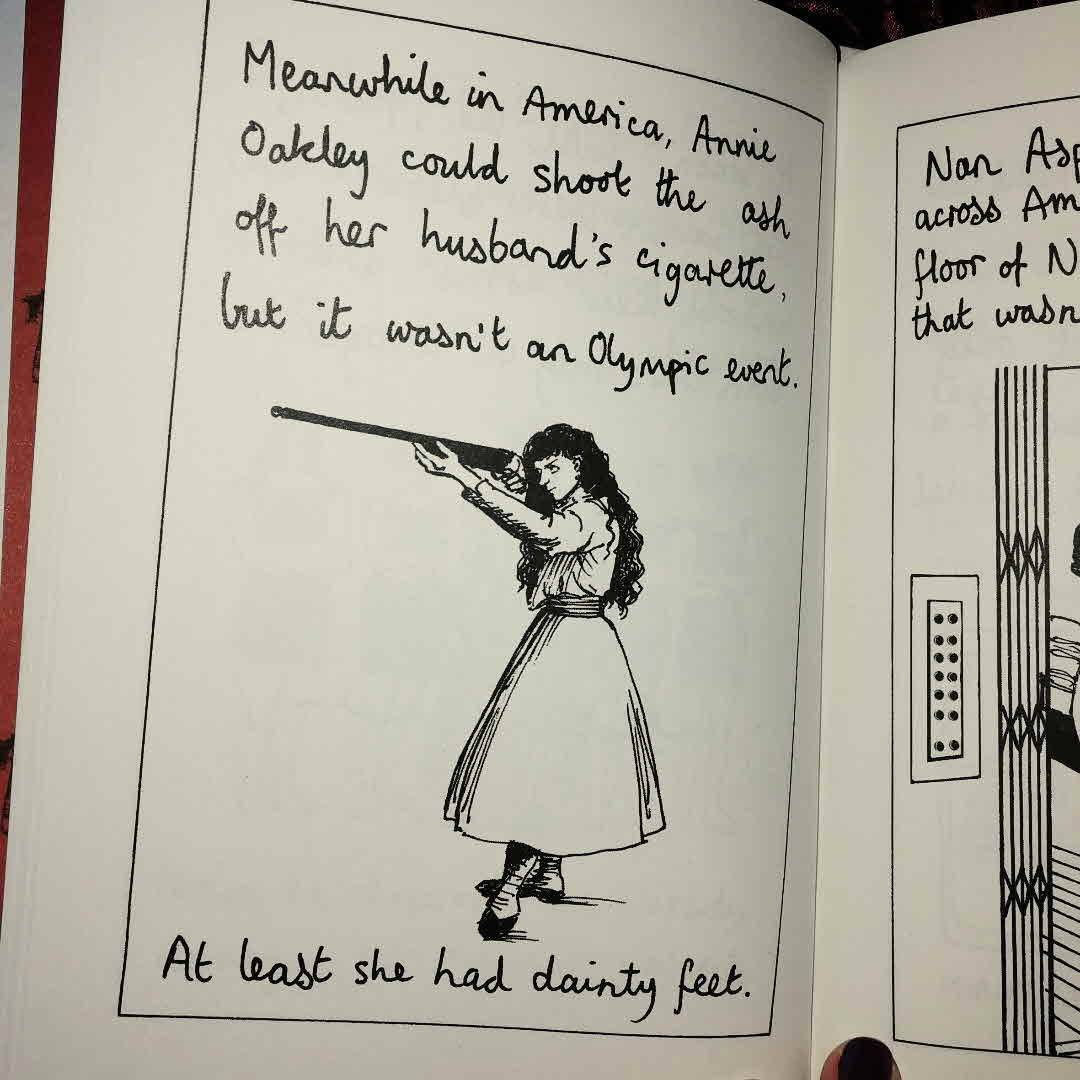 Meanwhile in America, Annie
Oakley could shoot the ash
off her husband's cigarette,
but it wasn't an Olympic event.
At least she had dainty feet.
Nan
across
floor of
that